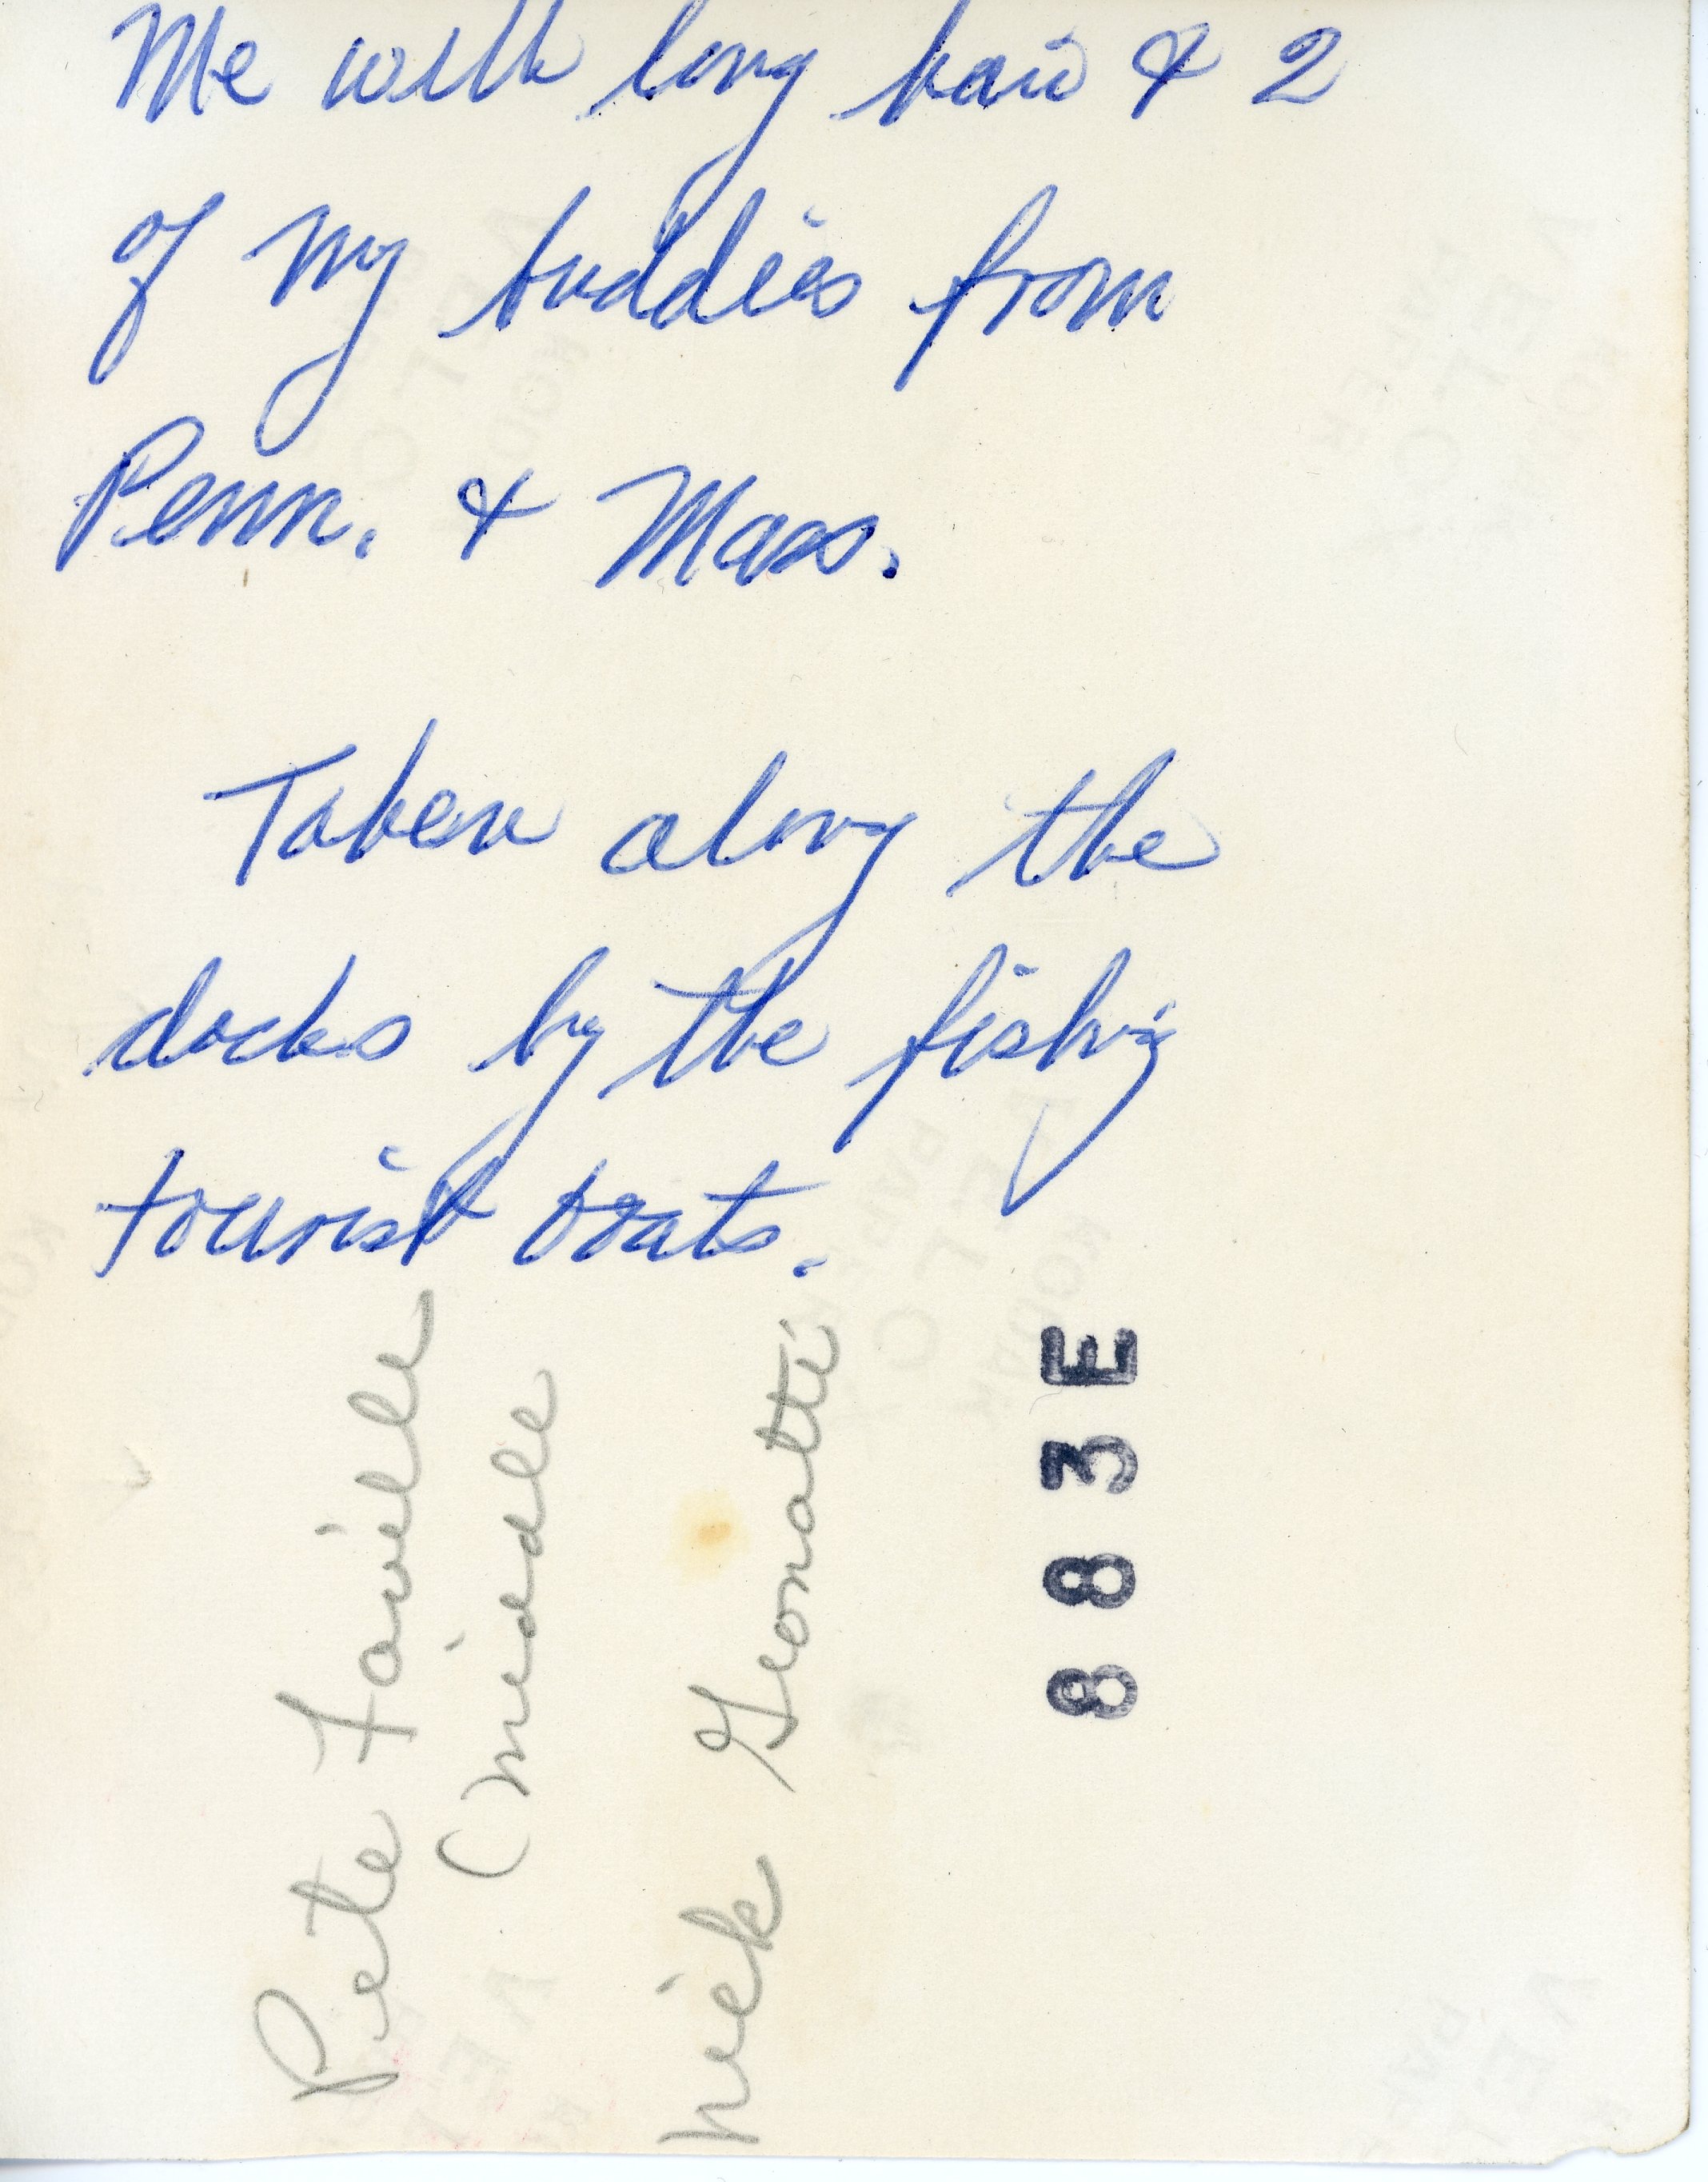 Me with long hair & 2
of my buddies from
Penn. & Mass.
Taken along the
docks by the fishing
tourist boats.
Pete Faville
(middle
Nick
883E